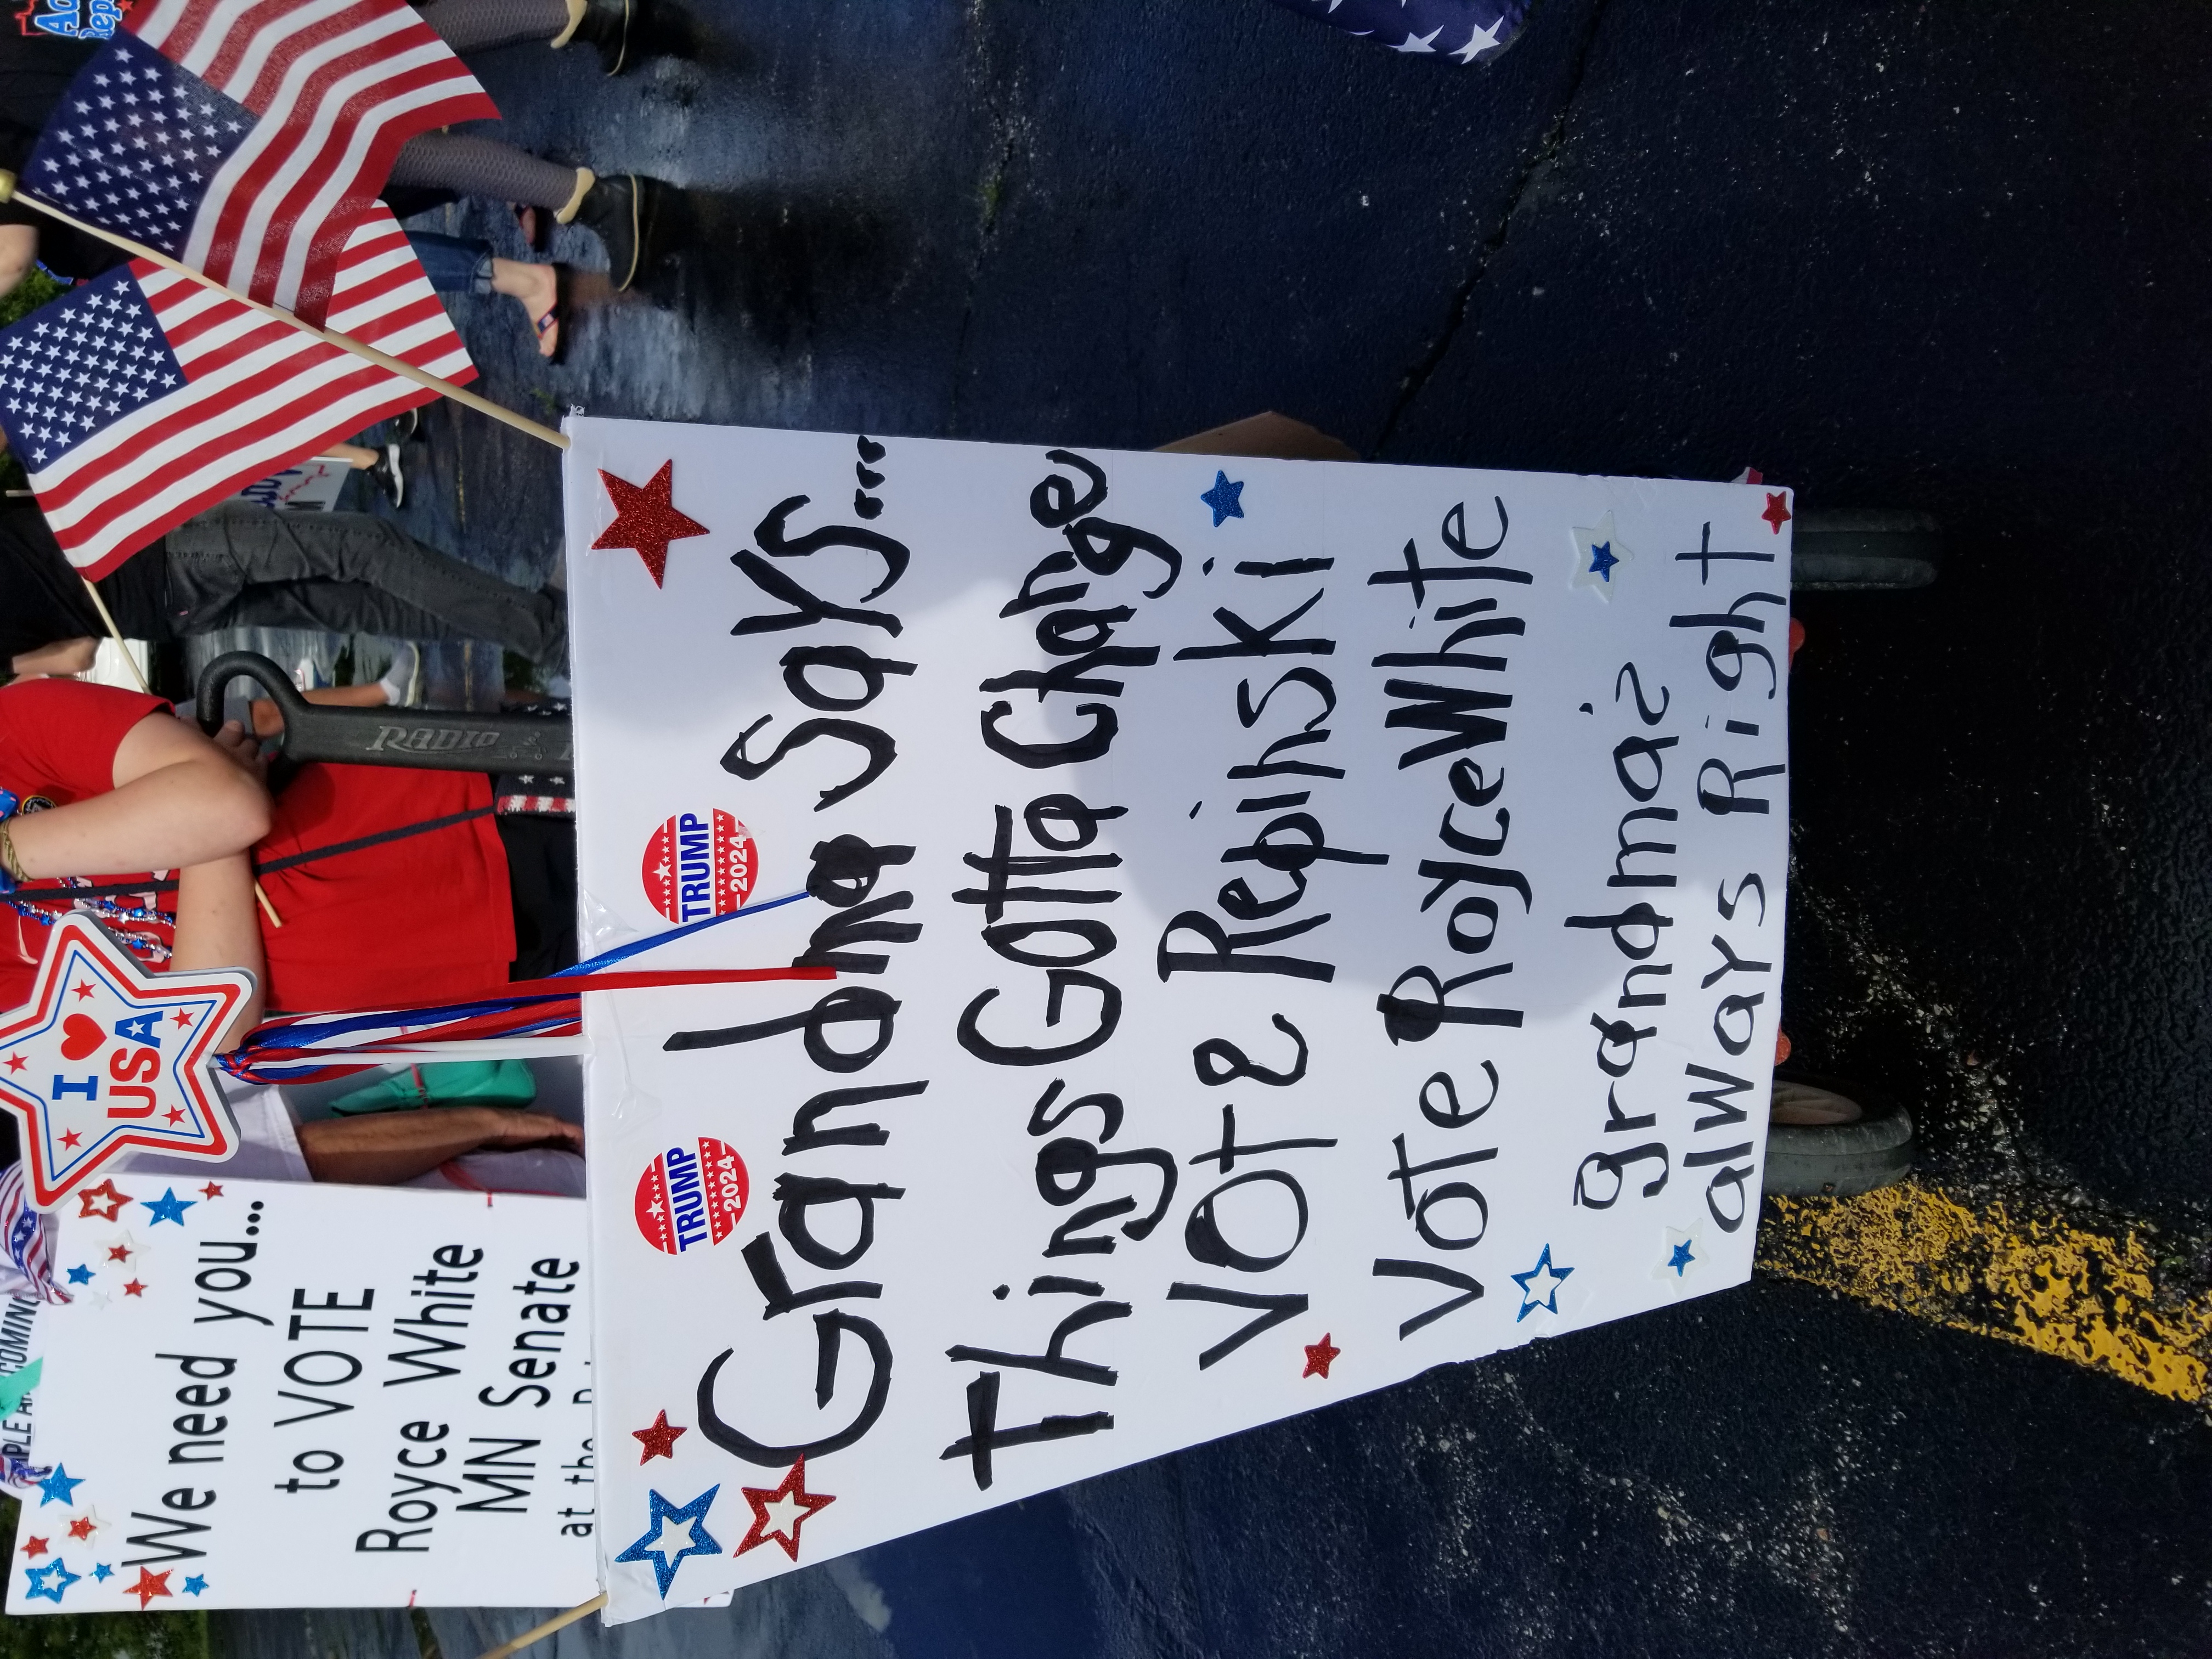 TRUMP
2024
TRUMP
2024
Grandma Says...
Things Gotta Change
Vote Repinski
Vote Royce White
grandma's
always Right
I
USA
RADIO
We need you...
to VOTE
Royce White
MN Senate
at the